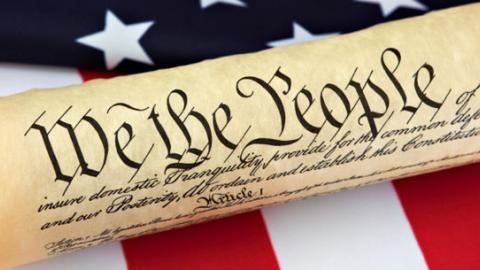 We the People of
insure domestic Tranquility, provide for the common defe
and our Posterity, do ordain and establish this Constitution
Article I